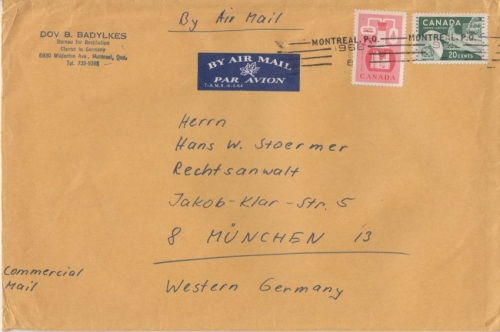 By Air Mail
DOV B. BADYLKES
Bureau for Restitution
Claims in Germany
Montreal, Que.
Tel.
MONTREAL. P.Q.
MONTREAL. P.Q.
196
CANADA
CANADA
20 CENTS
BY AIR MAIL
PAR AVION
Herrn
Hans W. Stoermer
Rechtsanwalt
Jakob-Klar-Str. 5
8 MÜNCHEN 13
Commercial
Mail
Western Germany